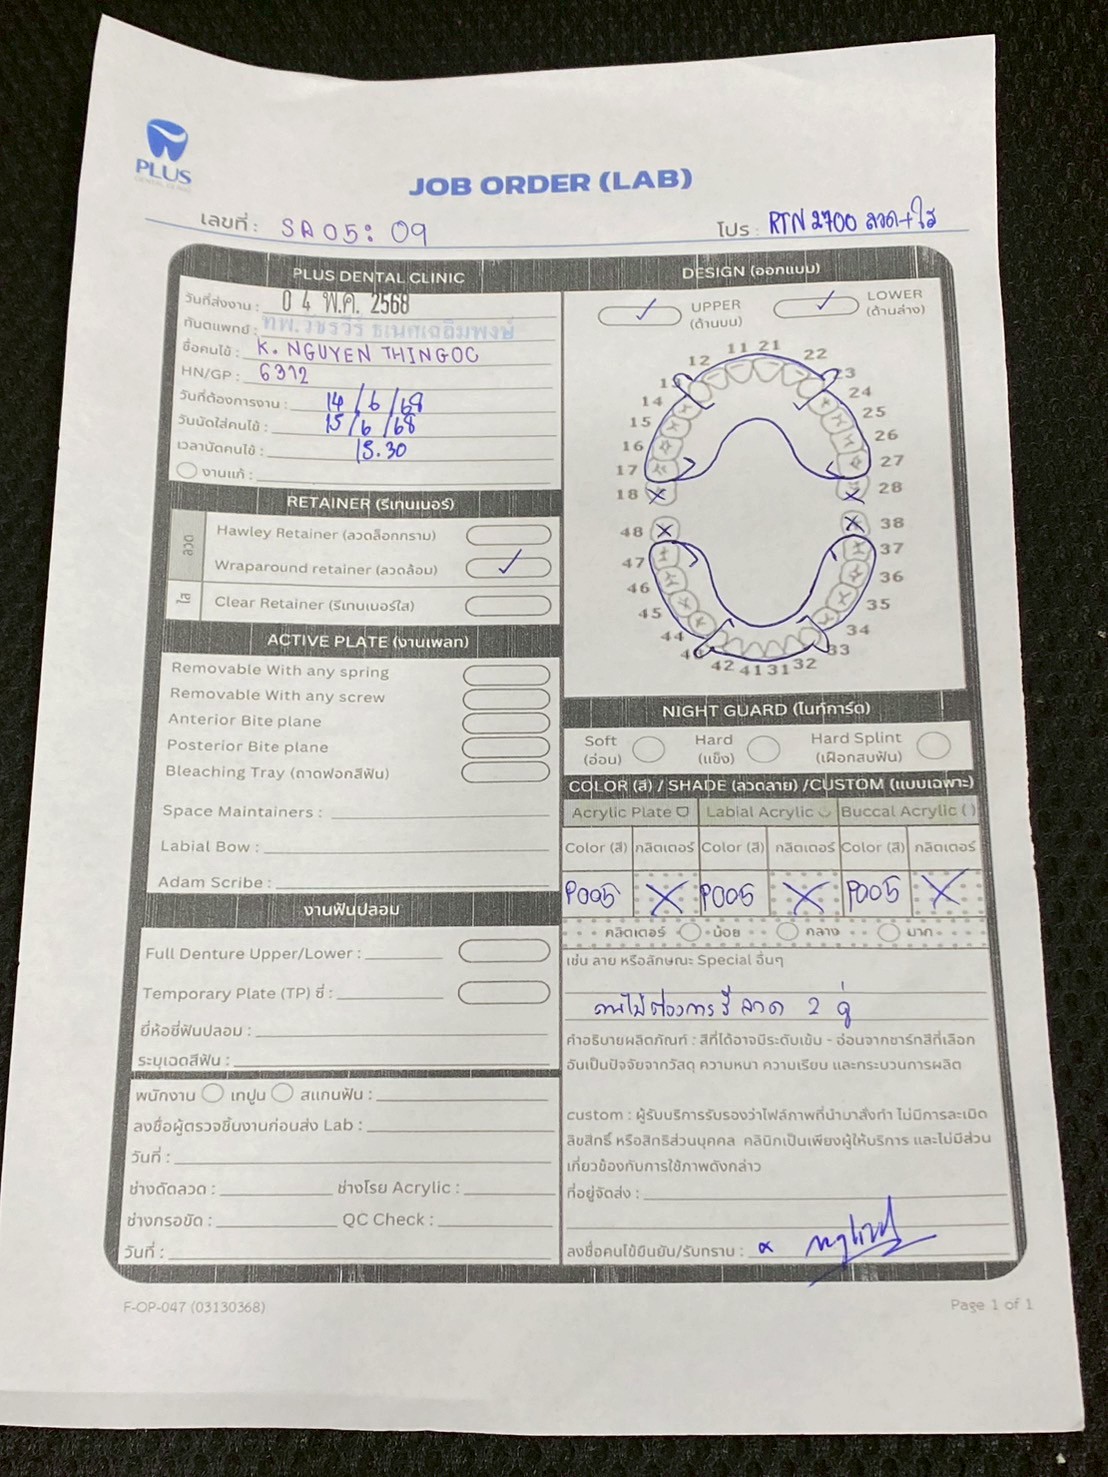 PLUS
DENTAL CLINIC
JOB ORDER (LAB)
เลขที่ : SA05: 09
โปร : RTN 2700 ลวด+ใส
PLUS DENTAL CLINIC
วันที่ส่งงาน : 0 4 พ.ค. 2568
ทันตแพทย์ : ทพ.วัชรวีร์ ธเนศเฉลิมพงษ์
ชื่อคนไข้ : K. NGUYEN THINGOC
HN/GP : 6312
วันที่ต้องการงาน : 14/6/68
วันนัดใส่คนไข้ : 15/6/68
เวลานัดคนไข้ : 15.30
งานแก้ :
RETAINER (รีเทนเนอร์)
ลวด
Hawley Retainer (ลวดล็อกกราม)
Wraparound retainer (ลวดล้อม) ✓
ใส
Clear Retainer (รีเทนเนอร์ใส)
ACTIVE PLATE (งานเพลท)
Removable With any spring
Removable With any screw
Anterior Bite plane
Posterior Bite plane
Bleaching Tray (ถาดฟอกสีฟัน)
Space Maintainers :
Labial Bow :
Adam Scribe :
งานฟันปลอม
Full Denture Upper/Lower :
Temporary Plate (TP) ซี่ :
ยี่ห้อซี่ฟันปลอม :
ระบุเฉดสีฟัน :
พนักงาน เทปูน สแกนฟัน :
ลงชื่อผู้ตรวจชิ้นงานก่อนส่ง Lab :
วันที่ :
ช่างดัดลวด : ช่างโรย Acrylic :
ช่างกรอขัด : QC Check :
วันที่ :
DESIGN (ออกแบบ)
✓ UPPER (ด้านบน)
✓ LOWER (ด้านล่าง)
11 21
12 22
23
14 24
15 25
16 26
17 27
18 28
48 38
47 37
46 36
45 35
44 34
33
42 41 31 32
NIGHT GUARD (ไนท์การ์ด)
Soft (อ่อน) Hard (แข็ง) Hard Splint (เฝือกสบฟัน)
COLOR (สี) / SHADE (ลวดลาย) /CUSTOM (แบบเฉพาะ)
Acrylic Plate Labial Acrylic Buccal Acrylic ( )
Color (สี) กลิตเตอร์ Color (สี) กลิตเตอร์ Color (สี) กลิตเตอร์
P005 X P005 X P005 X
กลิตเตอร์ น้อย กลาง มาก
เช่น ลาย หรือลักษณะ Special อื่นๆ
ลวด 2 คู่
คำอธิบายผลิตภัณฑ์ : สีที่ได้อาจมีระดับเข้ม - อ่อนจากชาร์ทสีที่เลือก
อันเป็นปัจจัยจากวัสดุ ความหนา ความเรียบ และกระบวนการผลิต
custom : ผู้รับบริการรับรองว่าไฟล์ภาพที่นำมาสั่งทำ ไม่มีการละเมิด
ลิขสิทธิ์ หรือสิทธิส่วนบุคคล คลินิกเป็นเพียงผู้ให้บริการ และไม่มีส่วน
เกี่ยวข้องกับการใช้ภาพดังกล่าว
ที่อยู่จัดส่ง :
ลงชื่อคนไข้ยืนยัน/รับทราบ :
F-OP-047 (03130368)
Page 1 of 1